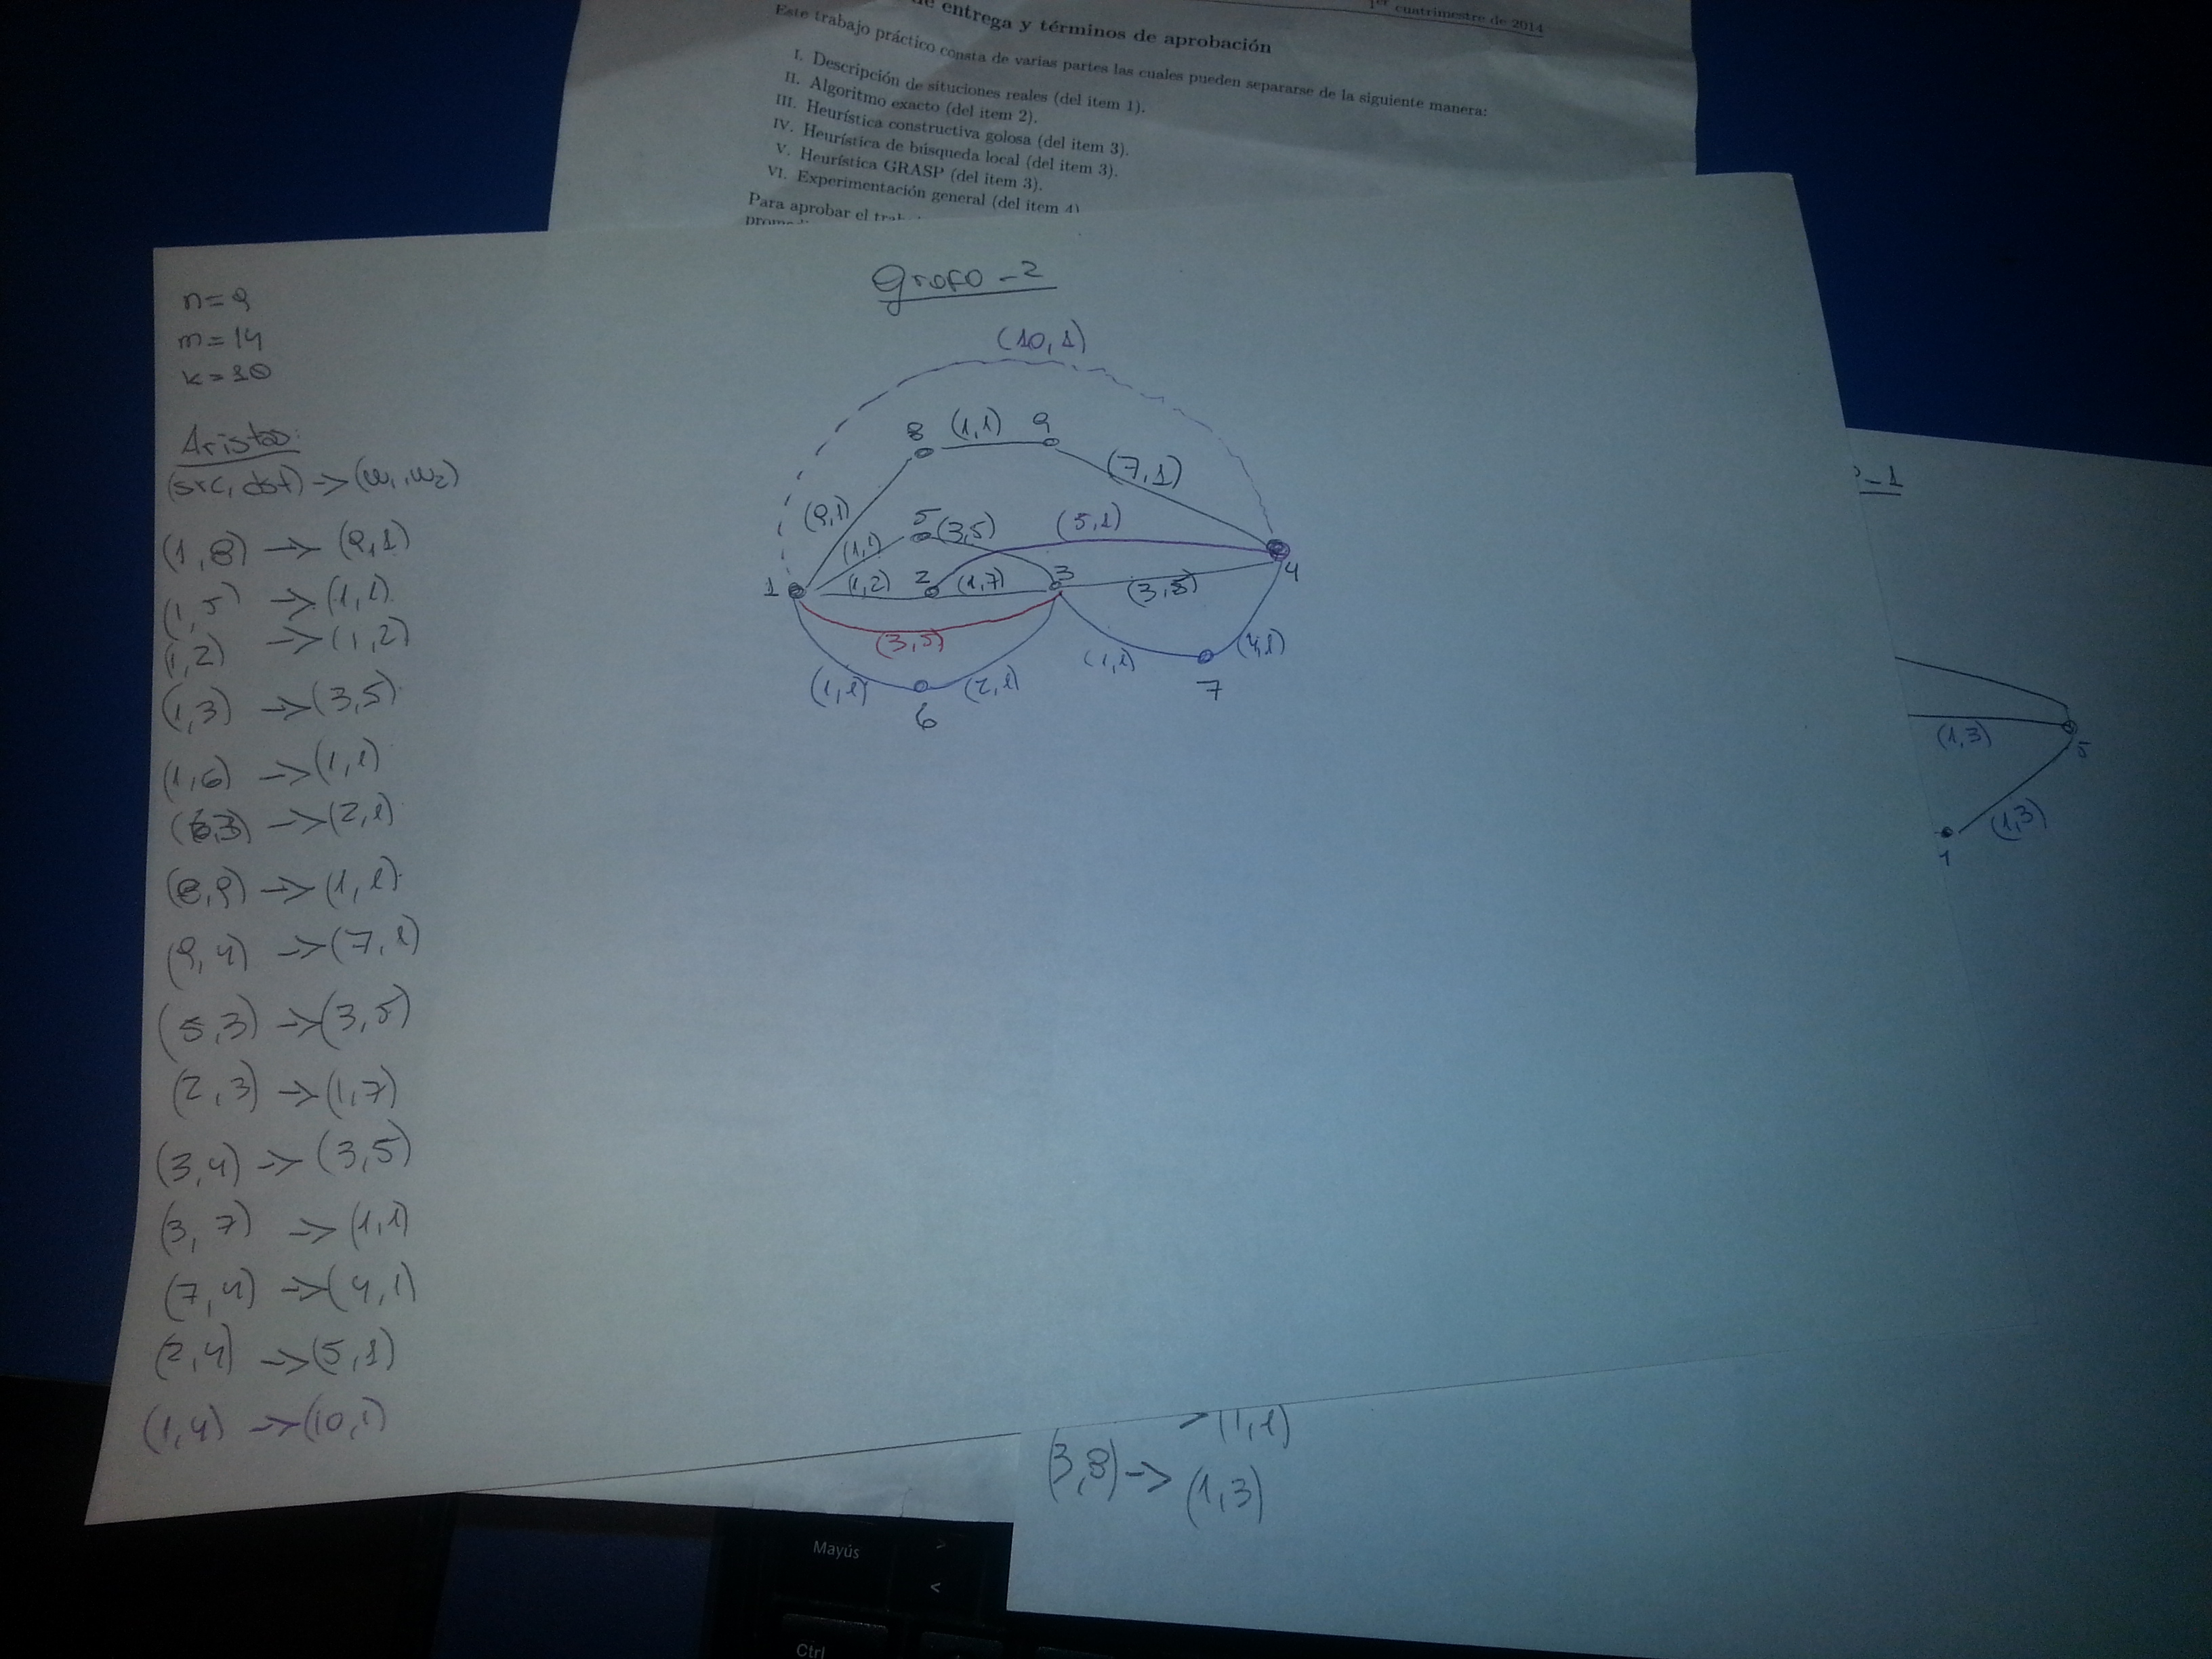 1er cuatrimestre de 2014
de entrega y términos de aprobación
Este trabajo práctico consta de varias partes las cuales pueden separarse de la siguiente manera:
I. Descripción de situciones reales (del item 1).
II. Algoritmo exacto (del item 2).
III. Heurística constructiva golosa (del item 3).
IV. Heurística de búsqueda local (del item 3).
V. Heurística GRASP (del item 3).
VI. Experimentación general (del item 4)
Para aprobar el
Grafo-2
n=9
m=14
k=10
Aristas:
(src, dst) -> (w1, w2)
(1,8) -> (9,1)
(1,5) -> (1,1)
(1,2) -> (1,2)
(1,3) -> (3,5)
(1,6) -> (1,1)
(6,3) -> (2,1)
(8,9) -> (1,1)
(9,4) -> (7,1)
(5,3) -> (3,5)
(2,3) -> (1,7)
(3,4) -> (3,5)
(3,7) -> (1,1)
(7,4) -> (4,1)
(2,4) -> (5,1)
(1,4) -> (10,1)
(10,1)
8 (1,1) 9
(7,1)
(9,1)
5 (3,5) (5,1)
(1,1)
1 (1,2) 2 (1,7) 3 (3,5) 4
(3,5)
(1,1) 6 (2,1)
(1,1) 7 (4,1)
-1
(1,3) 5
(1,3)
(1,1)
(3,8) -> (1,3)
Mayús > <
Ctrl